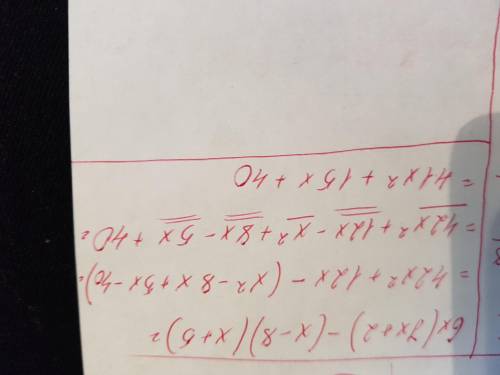 6x(7x+2)-(x-8)(x+5)=
=42x²+12x-(x²-8x+5x-40)=
=42x²+12x-x²+8x-5x+40=
=41x²+15x+40